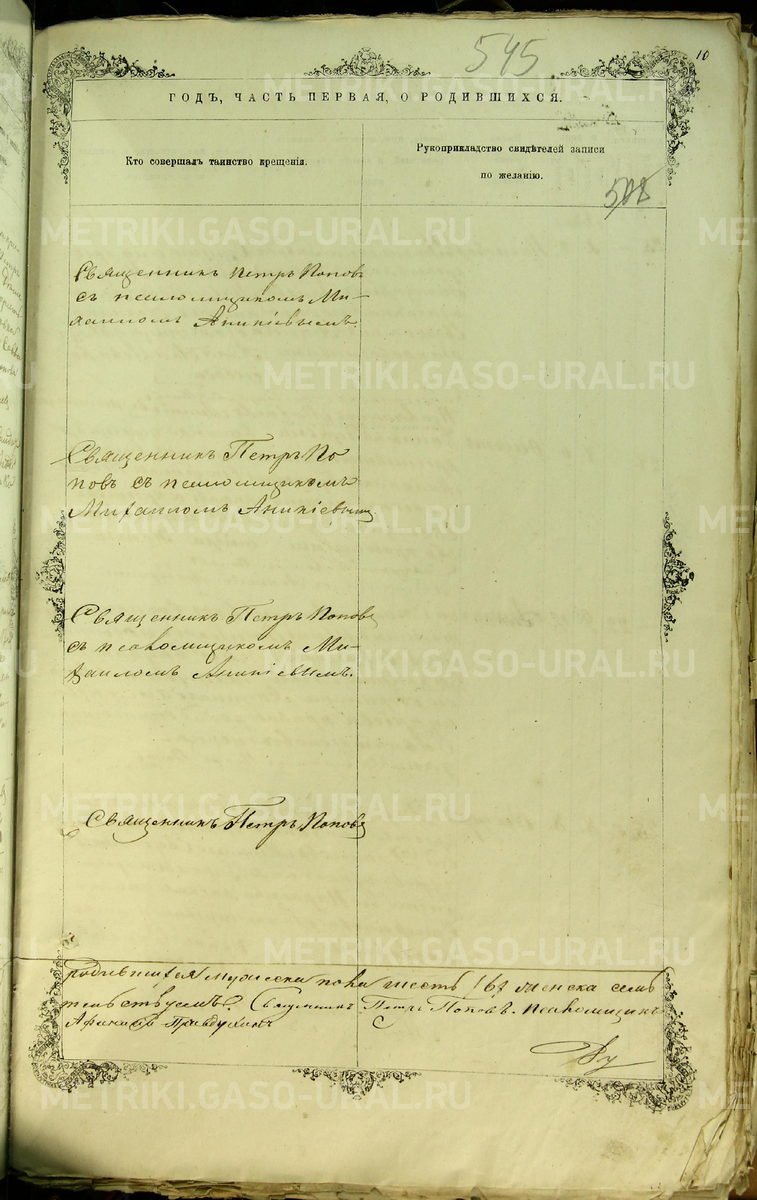 545
10
ГОДЪ, ЧАСТЬ ПЕРВАЯ, О РОДИВШИХСЯ.
Кто совершалъ таинство крещенія.
Рукоприкладство свидѣтелей записи
по желанію.
METRIKI.GASO-URAL.RU
Священникъ Петръ Поповъ
съ псаломщикомъ Ми-
хаиломъ Аникіевымъ.
Священникъ Петръ По
повъ съ псаломщикомъ
Михаиломъ Аникіевымъ
Священникъ Петръ Поповъ
съ псаломщикомъ Ми-
хаиломъ Аникіевымъ.
Священникъ Петръ Поповъ
пола шесть /6/ женска семь
Священникъ Петръ Поповъ. Псаломщикъ